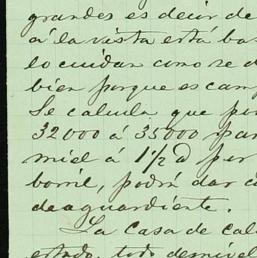 grandes es decir de
á la vista está ba
lo cuidan como se d
bien porque es cam
Se calcula que po
32000 á 35000 pan
miel á 1½ @ per
borril, podrá dar c
de aguardiente.
La Casa de cal
estado, todo desnivel